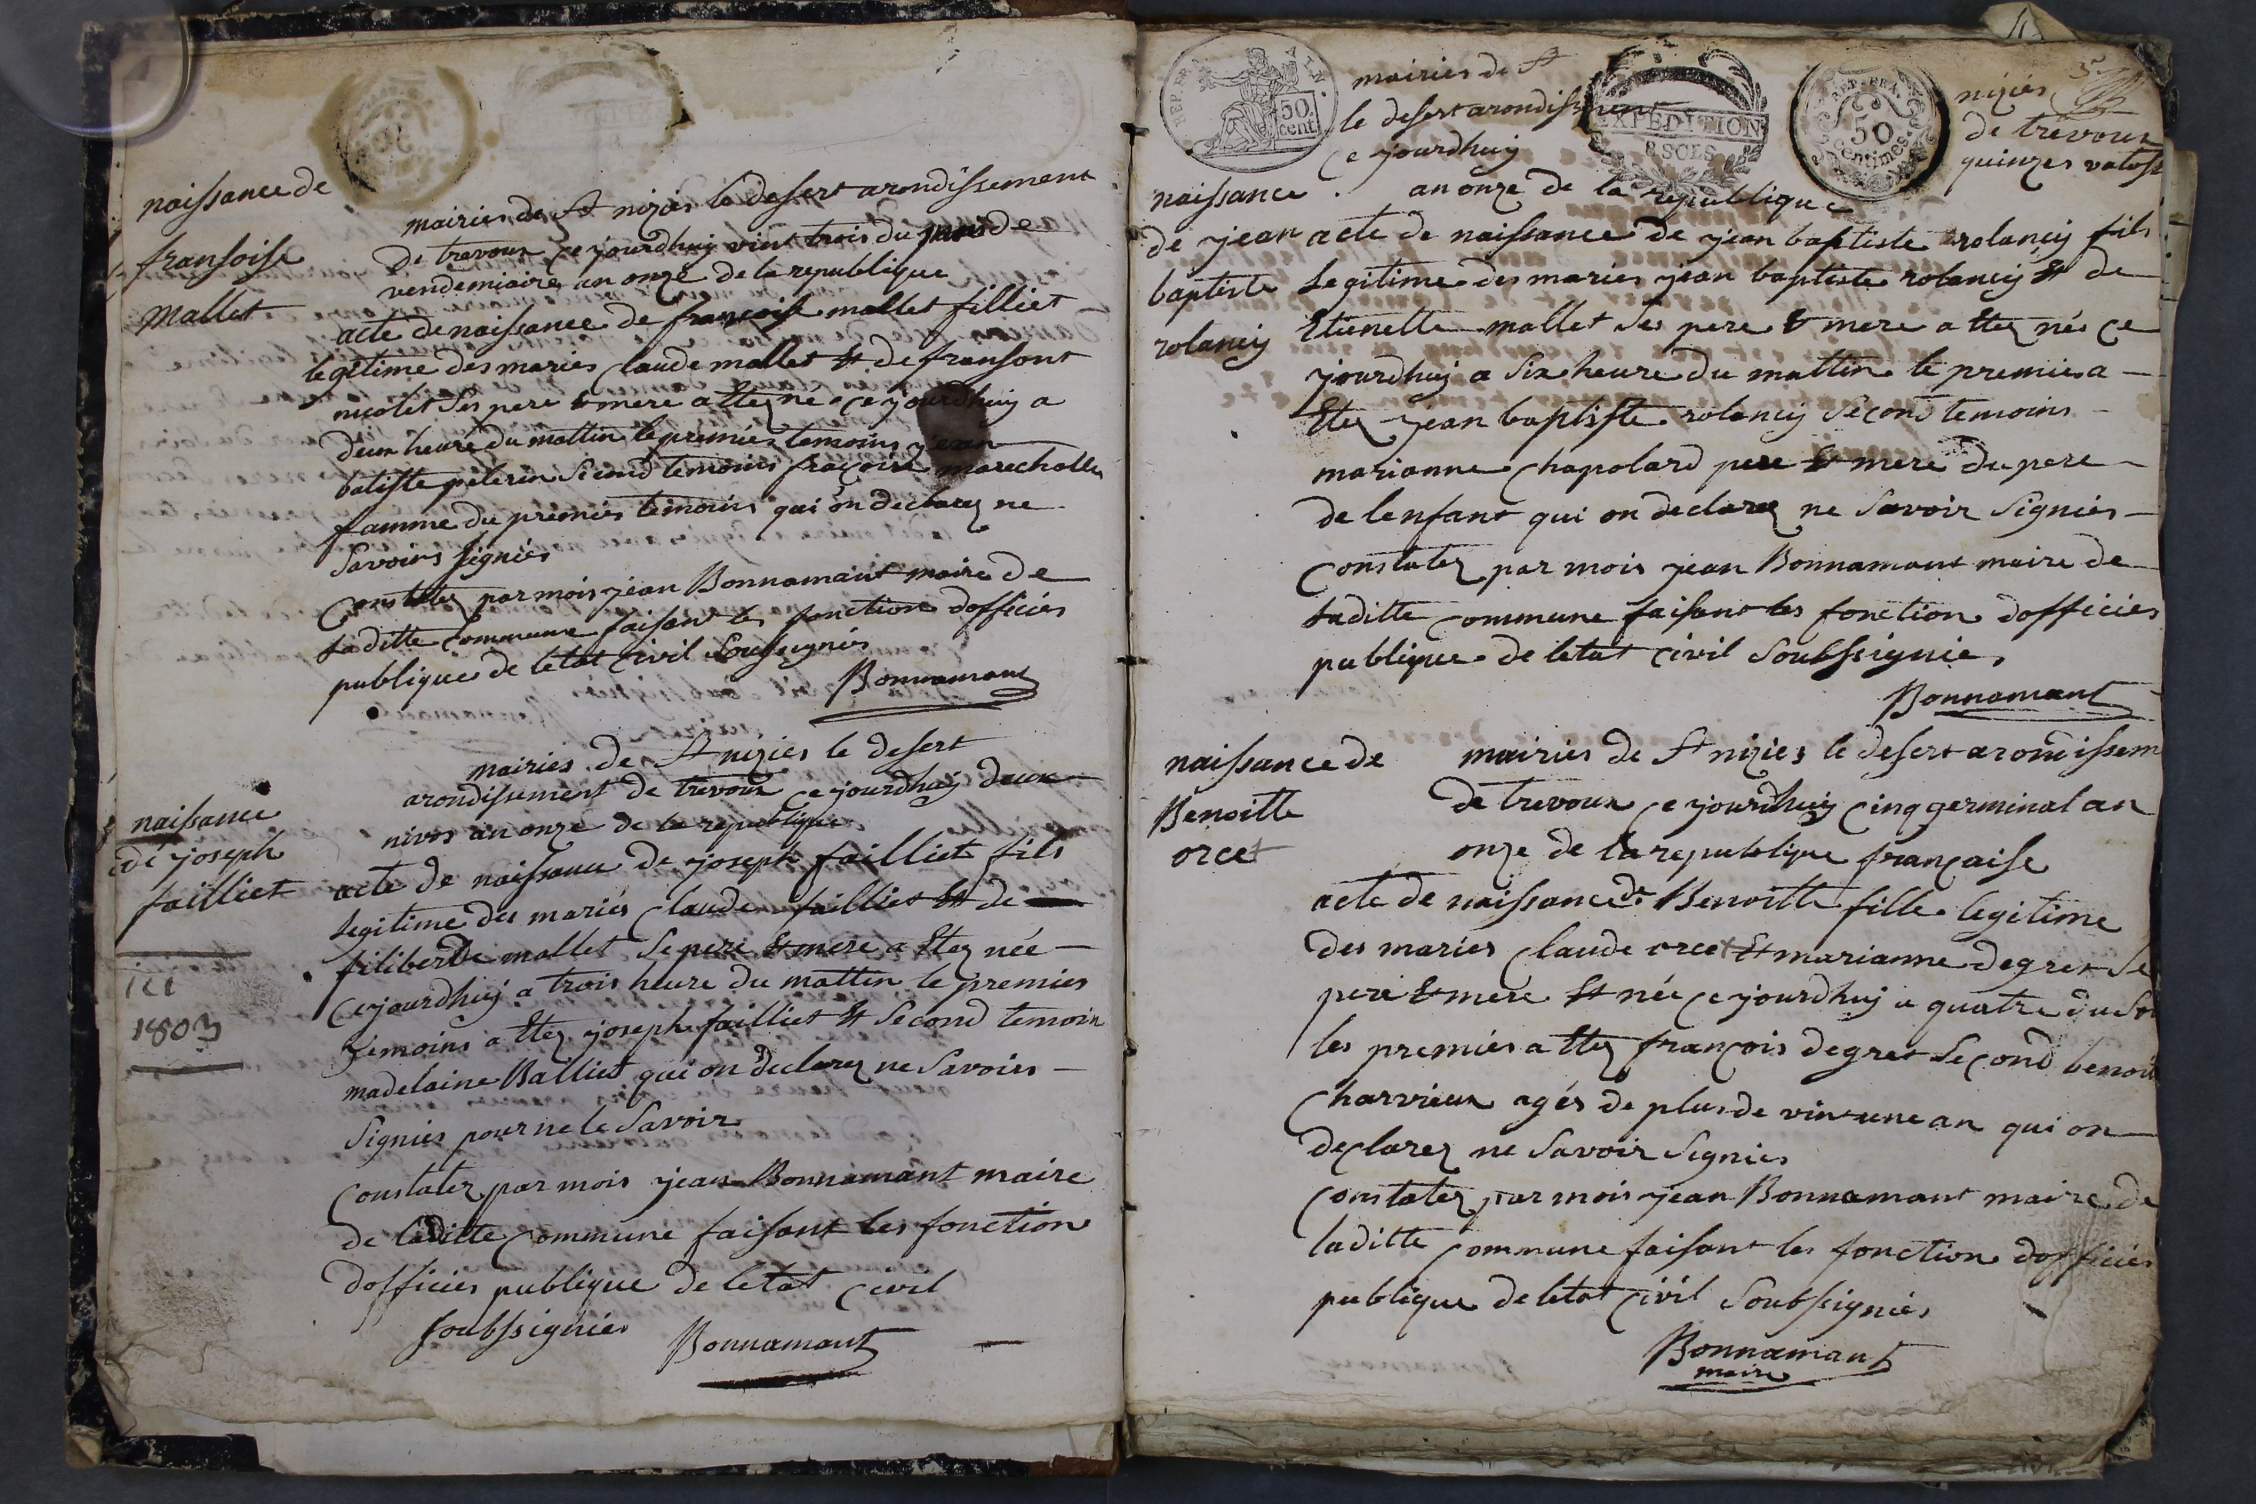 naissance de
fransoise
mallet
mairies de St nizies le desert arondissement
de trevoux ce jourdhuy vint trois du mois de
vendemiaire an onze de la republique
acte de naissance de françoise mallet filliet
legitime des mariés claude mallet et de fransont
nicolet ses pere et mere a ettez ne ce jourdhuy a
deux heure du mattin le premier temoins jean
batiste pelerin second temoins fraçoise marechalle
famme du premier temoins qui on declarez ne
savoirs signiés
Constatez par mois jean Bonnamant maire de
laditte commune faisant les fonction dofficiés
publique de letat civil Soussignies
Bonnamant
naissance
de joseph
failliet
ici
1803
mairies de St nizies le desert
arondissement de trevoux ce jourdhuy deux
nivos an onze de la republique
acte de naissance de joseph failliet fils
legitime des mariés claude failliet et de
filiberde mallet se pere et mere a ettez née
ce jourdhuy a trois heure du mattin le premies
temoins a ettez joseph failliet et second temoin
madelaine Balliet qui on declarez ne savoirs
signies pour ne le savoir
Constatez par mois jean Bonnamant maire
de laditte commune faisant les fonction
dofficies publique de letat civil
soubssignies
Bonnamant
REP. FRA.
50
cent.
EXPEDITION
8 SCES
REP. FRA.
50
centimes.
mairies de St nizies
le desert arondissement de trevoux
ce jourdhuy quinzes
an onze de la republique
naissance
de jean
baptiste
rolancy
acte de naissance de jean baptiste rolancy fils
legitime des mariés jean baptiste rolancy et de
Etienette mallet ses pere et mere a ettez nés ce
jourdhuy a six heure du mattin le premies a
ettez jean baptiste rolancy second temoins
marianne chapolard pere et mere du pere
de lenfant qui on declarez ne savoir signies
Constatez par mois jean Bonnamant maire de
laditte commune faisant les fonction dofficies
publique de letat civil soubssignies
Bonnamant
naissance de
Benoitte
orcet
mairies de St nizies le desert arondissem
de trevoux ce jourdhuy cinq germinal an
onze de la republique française
acte de naissance de Benoitte fille legitime
des maries claude orcet et marianne degret se
pere et mere et née ce jourdhuy a quatre du
les premiés a ettez françois degret second benoit
Charvieux agés de plus de vint une an qui on
declarez ne savoir signies
Constatez par mois jean Bonnamant maire de
laditte commune faisant les fonction dofficies
publique de letat civil soubssigniés
Bonnamant
maire